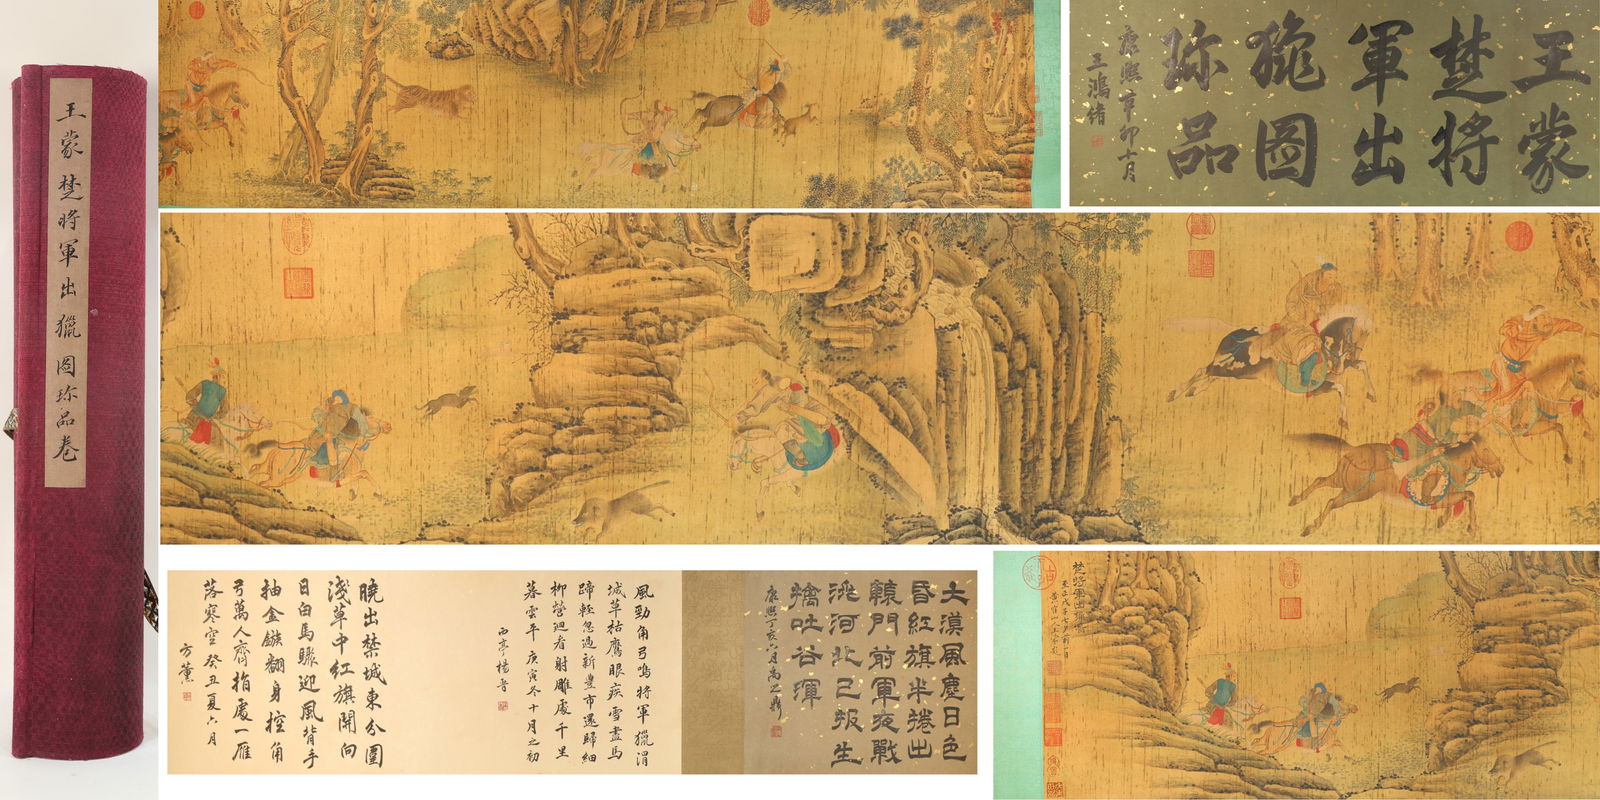 王蒙楚將軍出獵圖珎品卷
王蒙
楚將
軍出
獵圖
珎品
康熙辛卯十月
王鴻緒
大漠風塵日色
昏紅旗半捲出
轅門前軍夜戰
洮河北已報生
擒吐谷渾
康熙丁亥六月高
風勁角弓鳴將軍獵渭
城草枯鷹眼疾雪盡馬
蹄輕忽過新豐市還歸細
柳營迴看射雕處千里
暮雲平 庚寅冬十月之初
西亭楊晉
曉出禁城東分圍
淺草中紅旗開向
日白馬驟迎風背手
抽金鏃翻身控角
弓萬人齊指處一雁
落寒空 癸丑夏六月
方薰
楚將軍出獵圖
至正戊子七月前一日